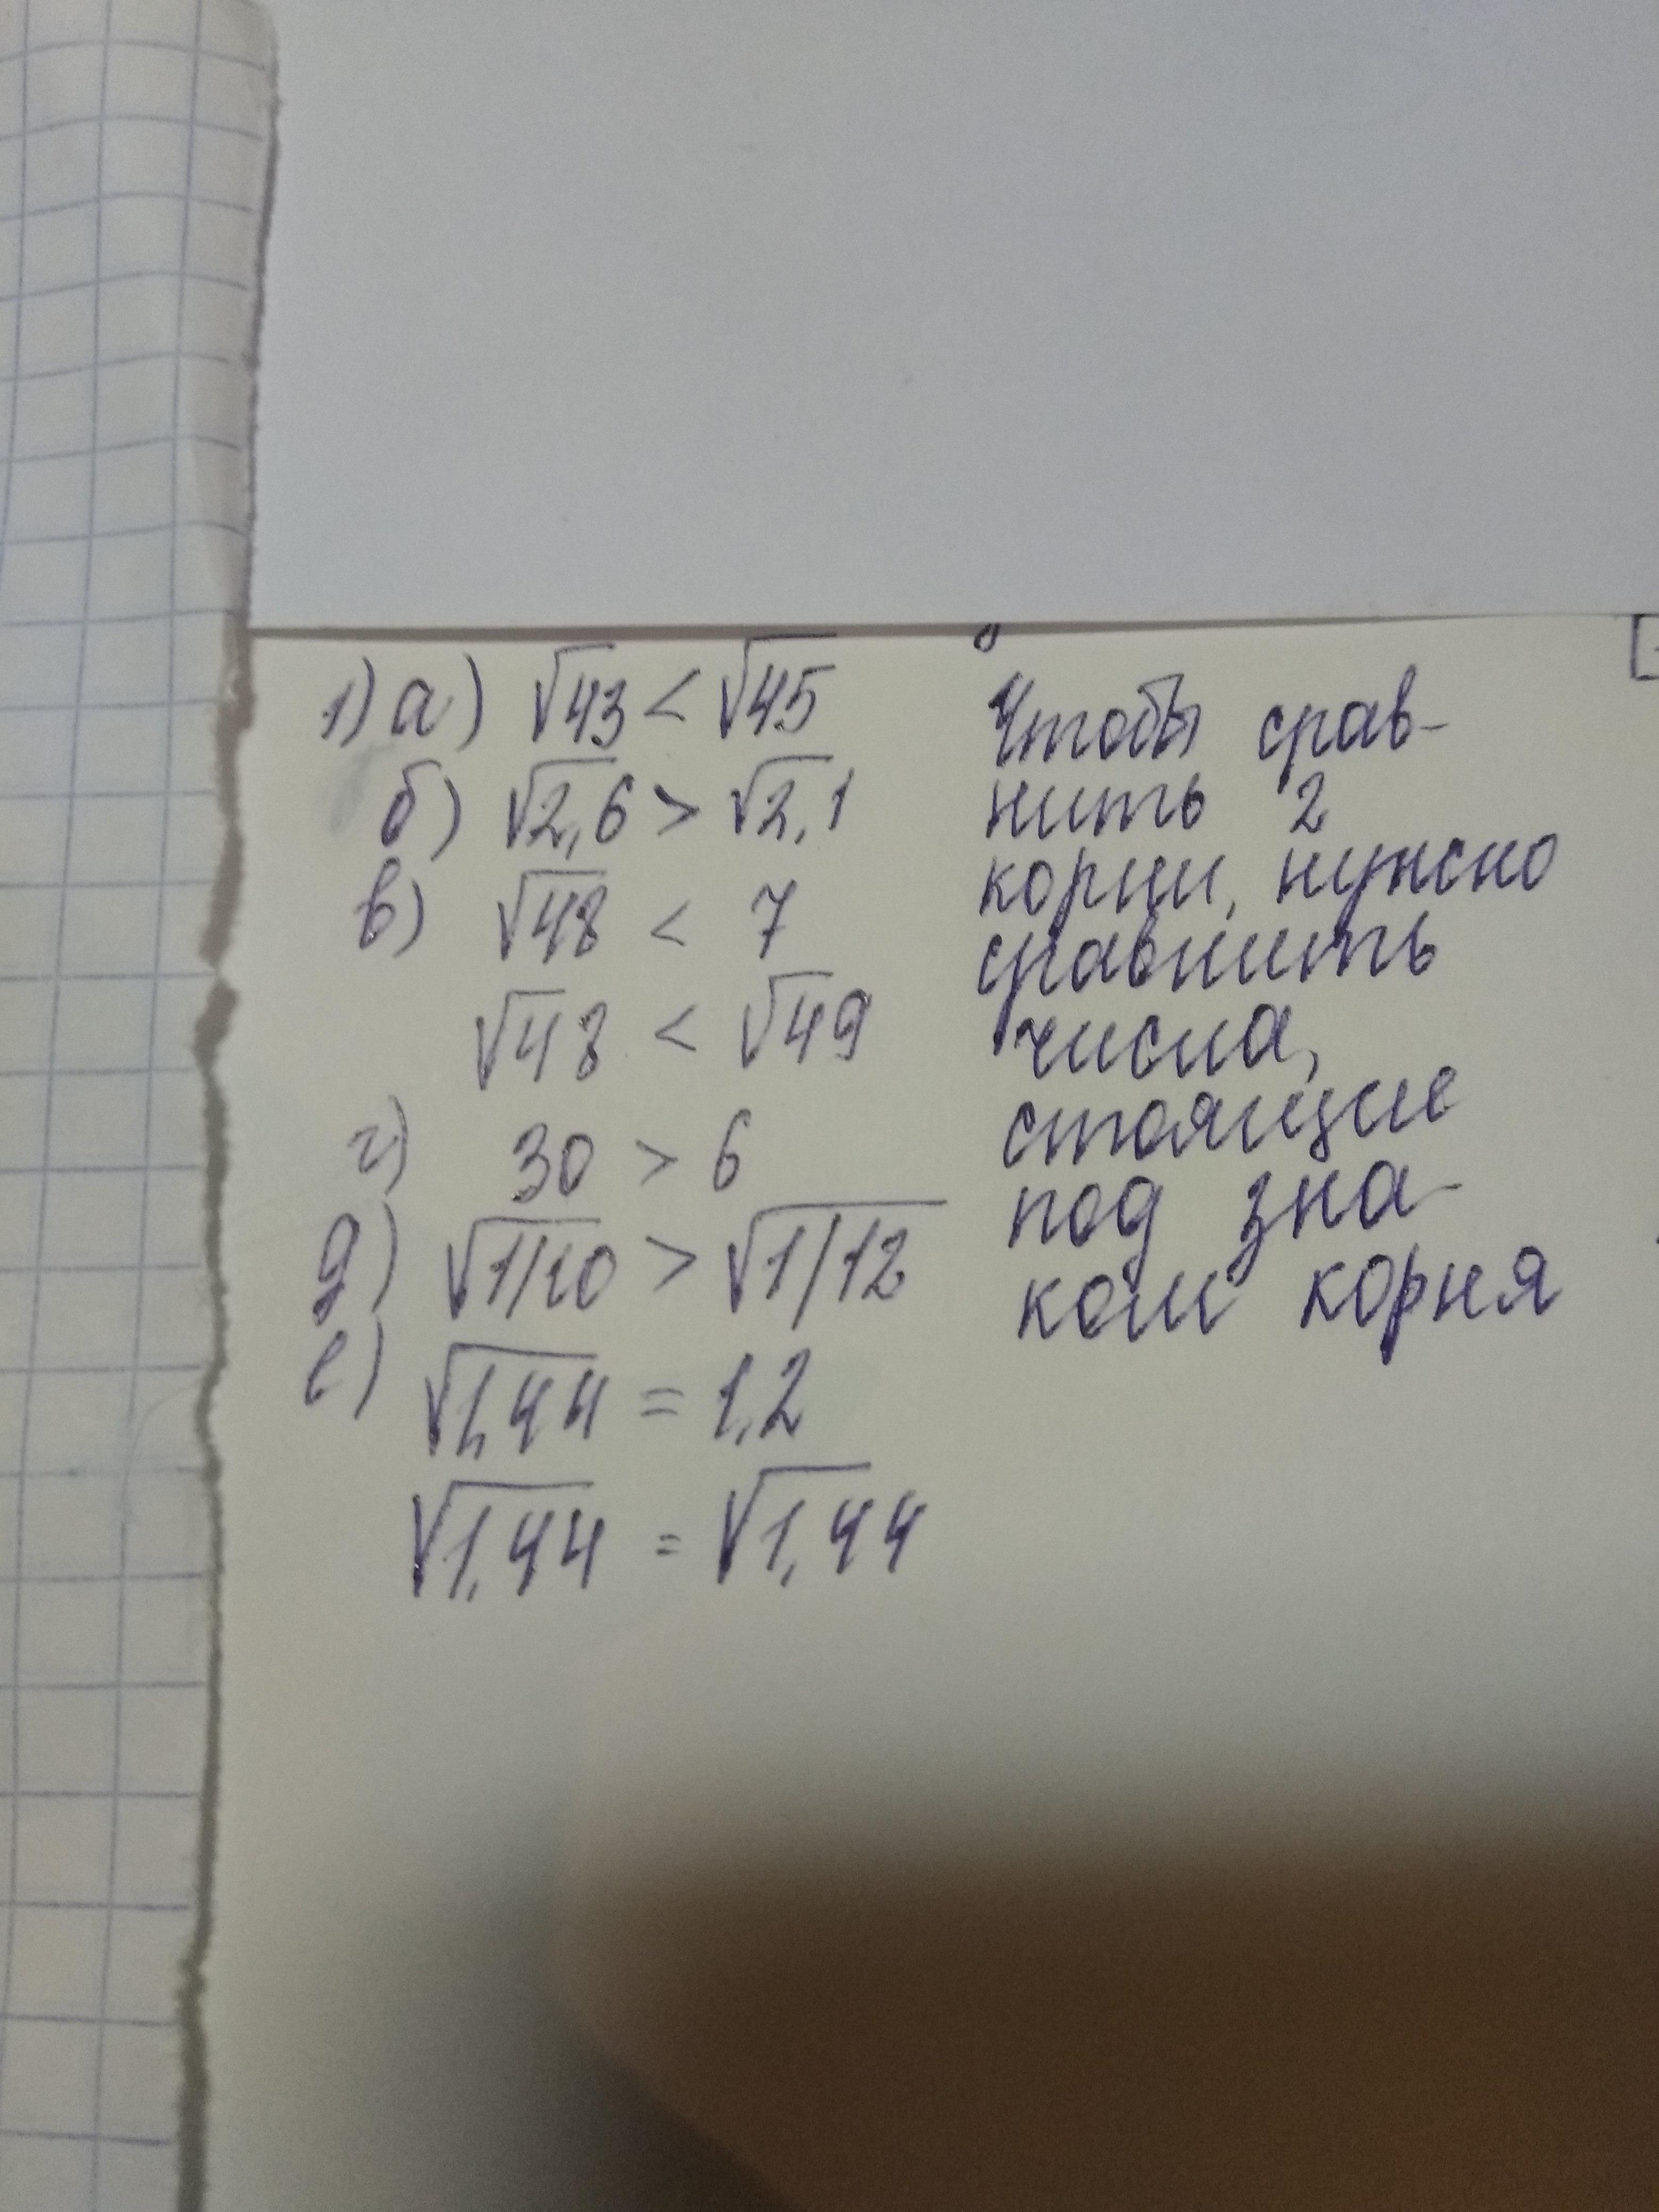 1) а) √43 < √45
б) √2,6 > √2,1
в) √48 < 7
√48 < √49
г) 30 > 6
д) √1/10 > √1/12
е) √1,44 = 1,2
√1,44 = √1,44
Чтобы срав-
нить 2
корни, нужно
сравнить
числа,
стоящие
под зна-
ком корня